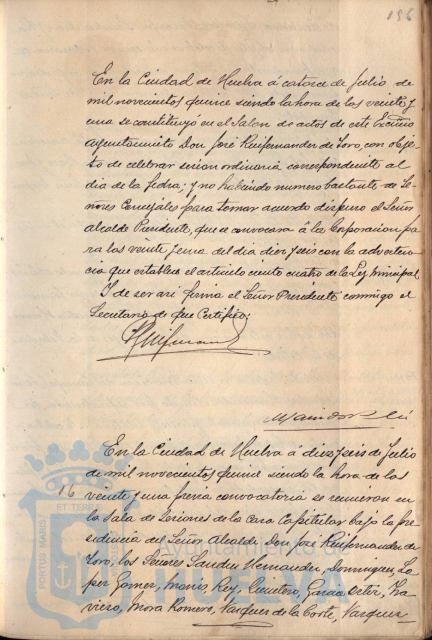 156
En la Ciudad de Huelva á catorce de Julio de
mil novecientos quince siendo la hora de las veinte y
una se constituyó en el Salon de actos de este Excmo
Ayuntamiento Don José Ruifernandez de Toro, con obje-
to de celebrar sesion ordinaria correspondiente al
dia de la fecha; y no habiendo numero bastante de Se-
ñores Concejales para tomar acuerdo dispuso el Señor
Alcalde Presidente, que se convocara á la Corporacion pa
ra las veinte y una del dia diez y seis con la adverten-
cia que establece el artículo ciento cuatro de la Ley Municipal
Y de ser asi firma el Señor Presidente conmigo el
Secretario de que Certifico:
En la Ciudad de Huelva á diez y seis de Julio
de mil novecientos quince siendo la hora de las
16
veinte y una previa convocatoria se reunieron en
la Sala de Sesiones de la Casa Capitular bajo la pre
sidencia del Señor Alcalde Don José Ruifernandez de
Toro, los Señores Sanchez Hernandez, Dominguez, Lo
pez Gomez, Rey, Quintero, Garcia
Mora Romero, Vazquez de la Corte, Vazquez
PORTUS MARIS ET TERRAE
Ayuntamiento de
HUELVA